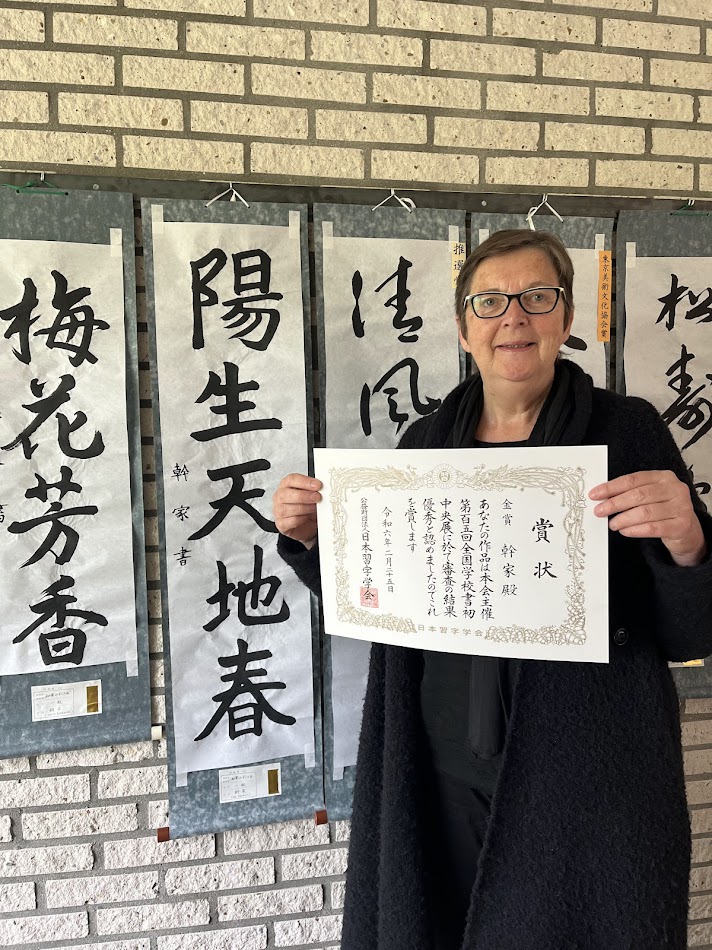 梅花芳香
陽生天地春
幹家書
清風
推選
東京美術文化協会賞
松寿
賞状
金賞 幹家殿
あなたの作品は本会主催
第百五回全国学校書初
中央展に於て審査の結果
優秀と認めましたのでこれ
を賞します
令和六年二月二十五日
公益財団法人日本習字学会
日本習字学会